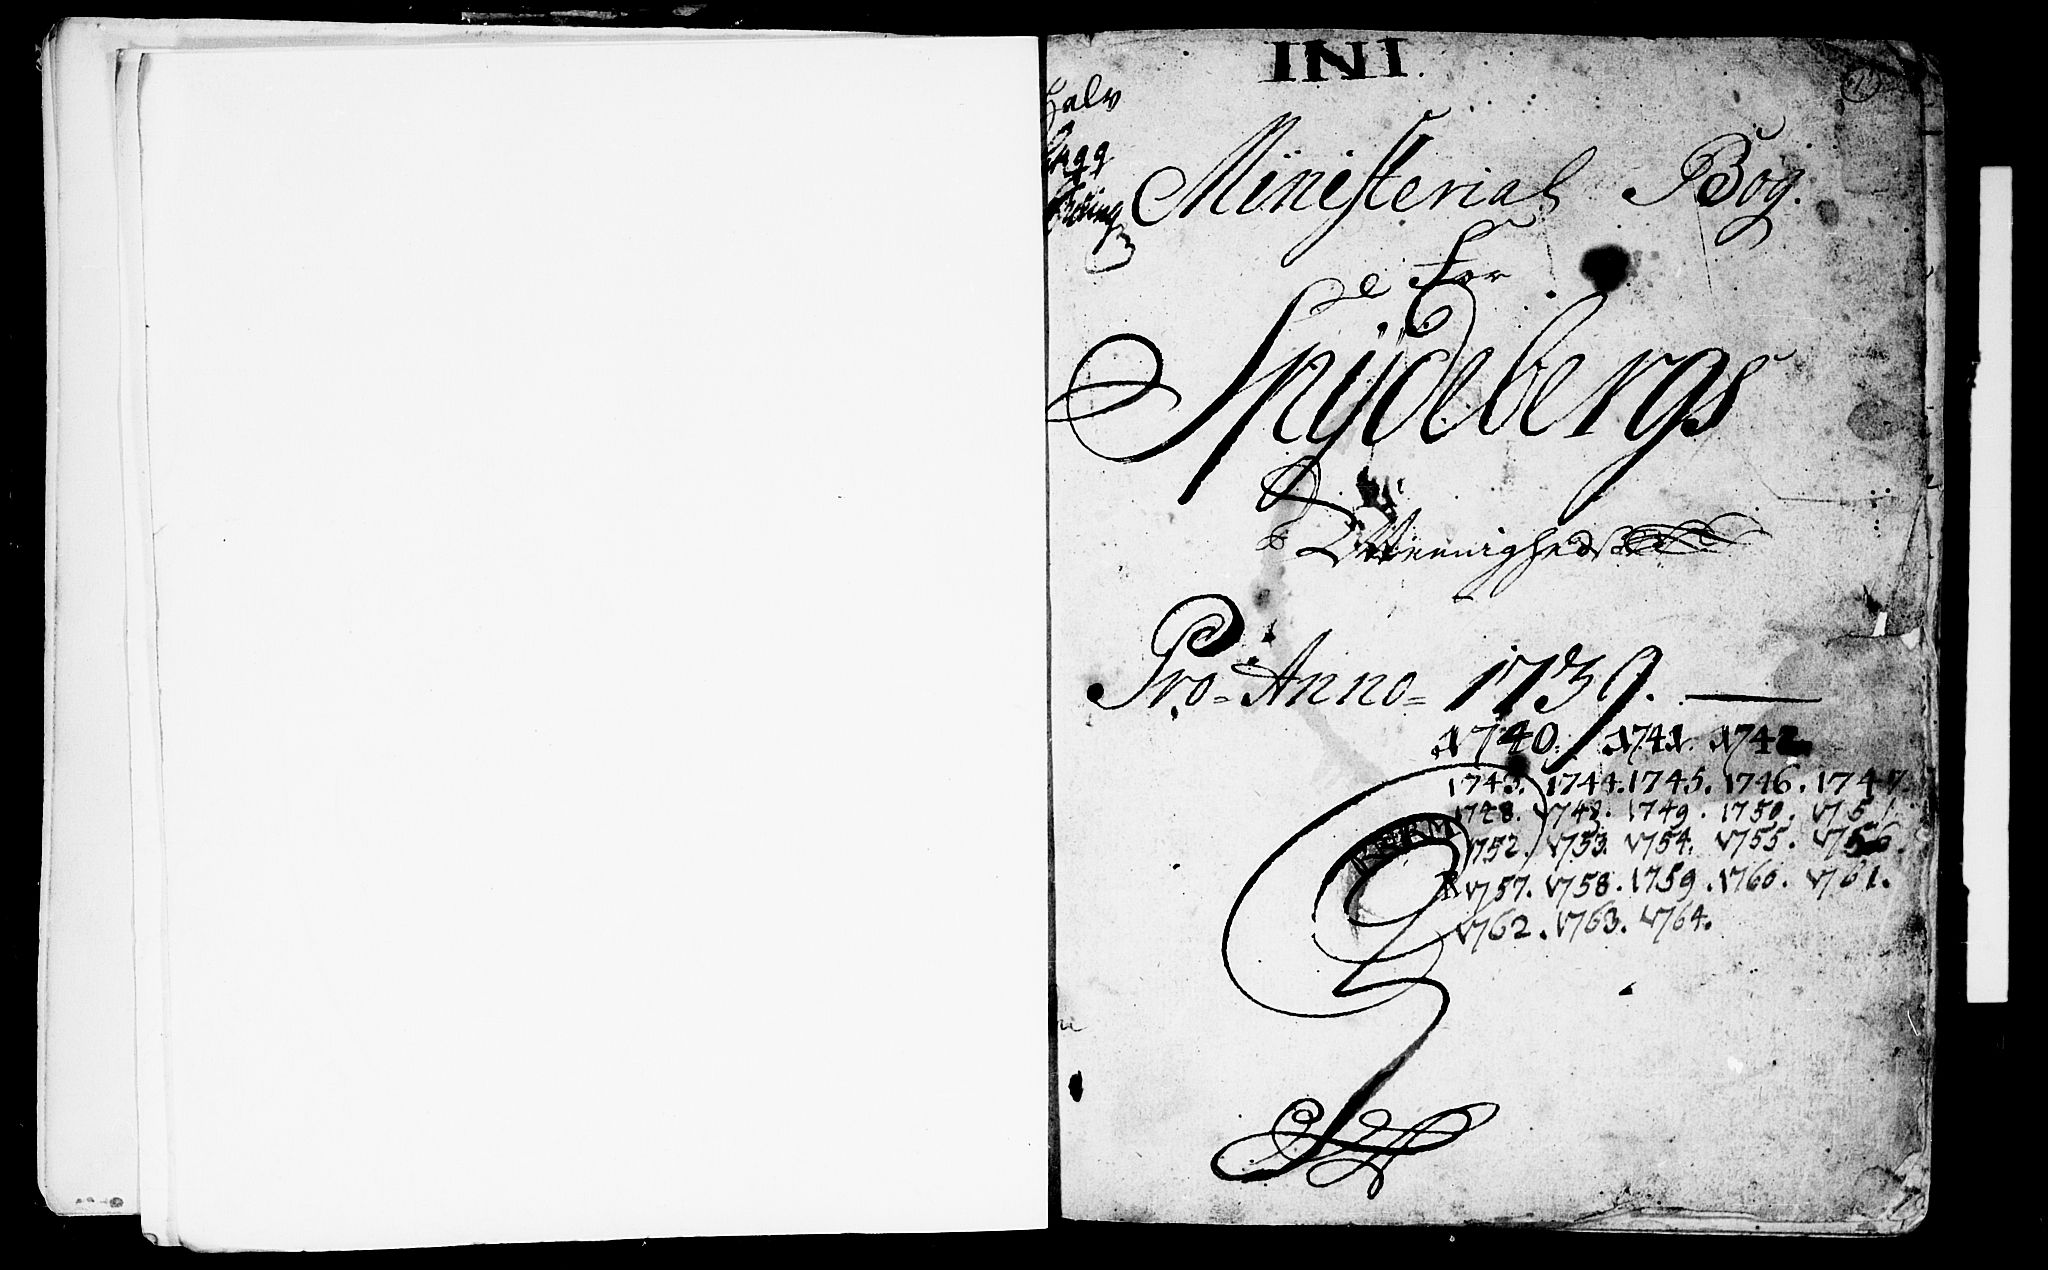 INI.
1
Halv
Ministerial Bog.
For
Spÿdebergs
Meenigheds
Pro = Anno = 1739.
1740. 1741. 1742.
1743. 1744. 1745. 1746. 1747.
1748. 1748. 1749. 1750. 1751.
1752. 1753. 1754. 1755. 1756.
1757. 1758. 1759. 1760. 1761.
1762. 1763. 1764.